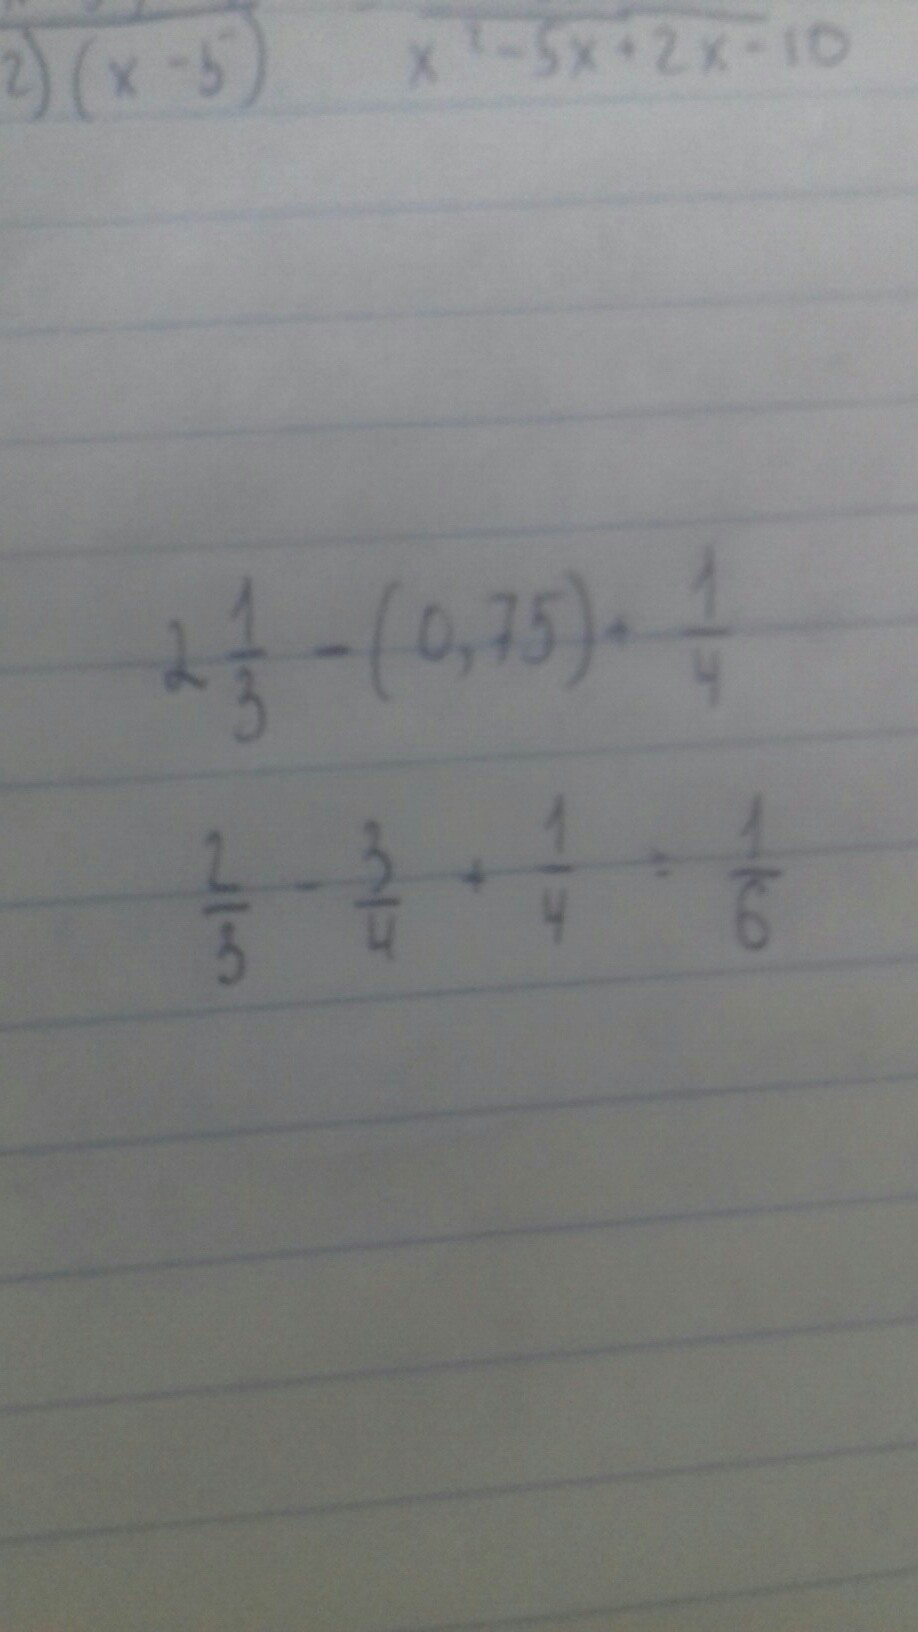 2)(x-5) x²-5x+2x-10
2 1/3 - (0,75) + 1/4
2/3 - 3/4 + 1/4 = 1/6